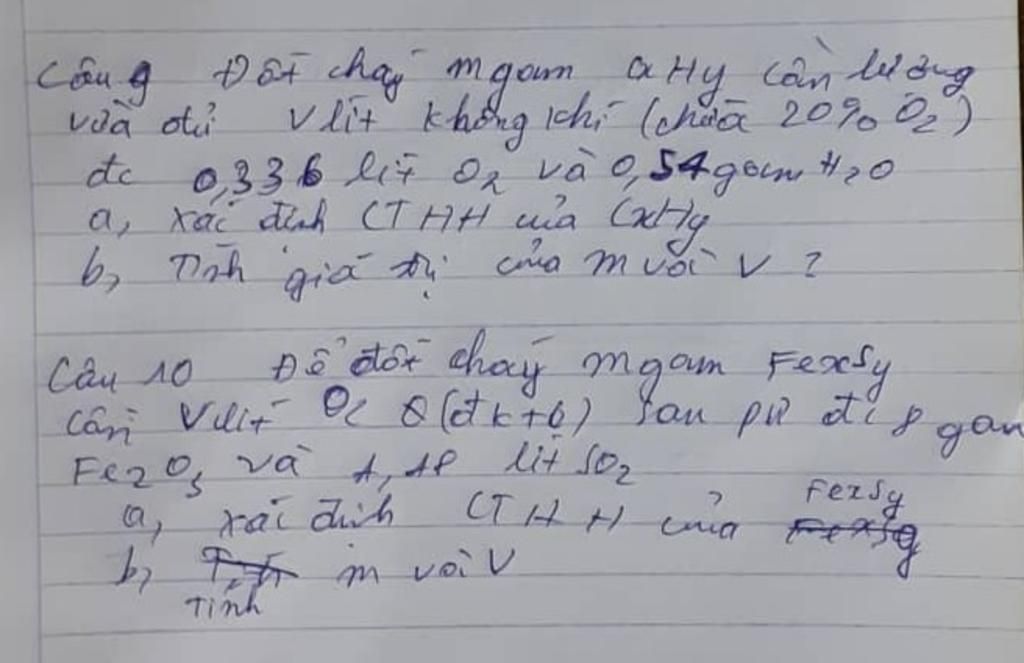 Câu 9 Đốt cháy m gam CxHy cần lượng
vừa đủ V lít không khí (chứa 20% O2)
đc 0,336 lít O2 và 0,54 gam H2O
a, xác định CTHH của CxHy
b, Tính giá trị của m với V ?
Câu 10 Để đốt cháy m gam FexSy
cần V lít O2 (đktc) sau pứ đc 8 gam
Fe2O3 và lít SO2
a, xác định CTHH của FexSy
b, Tính m với V